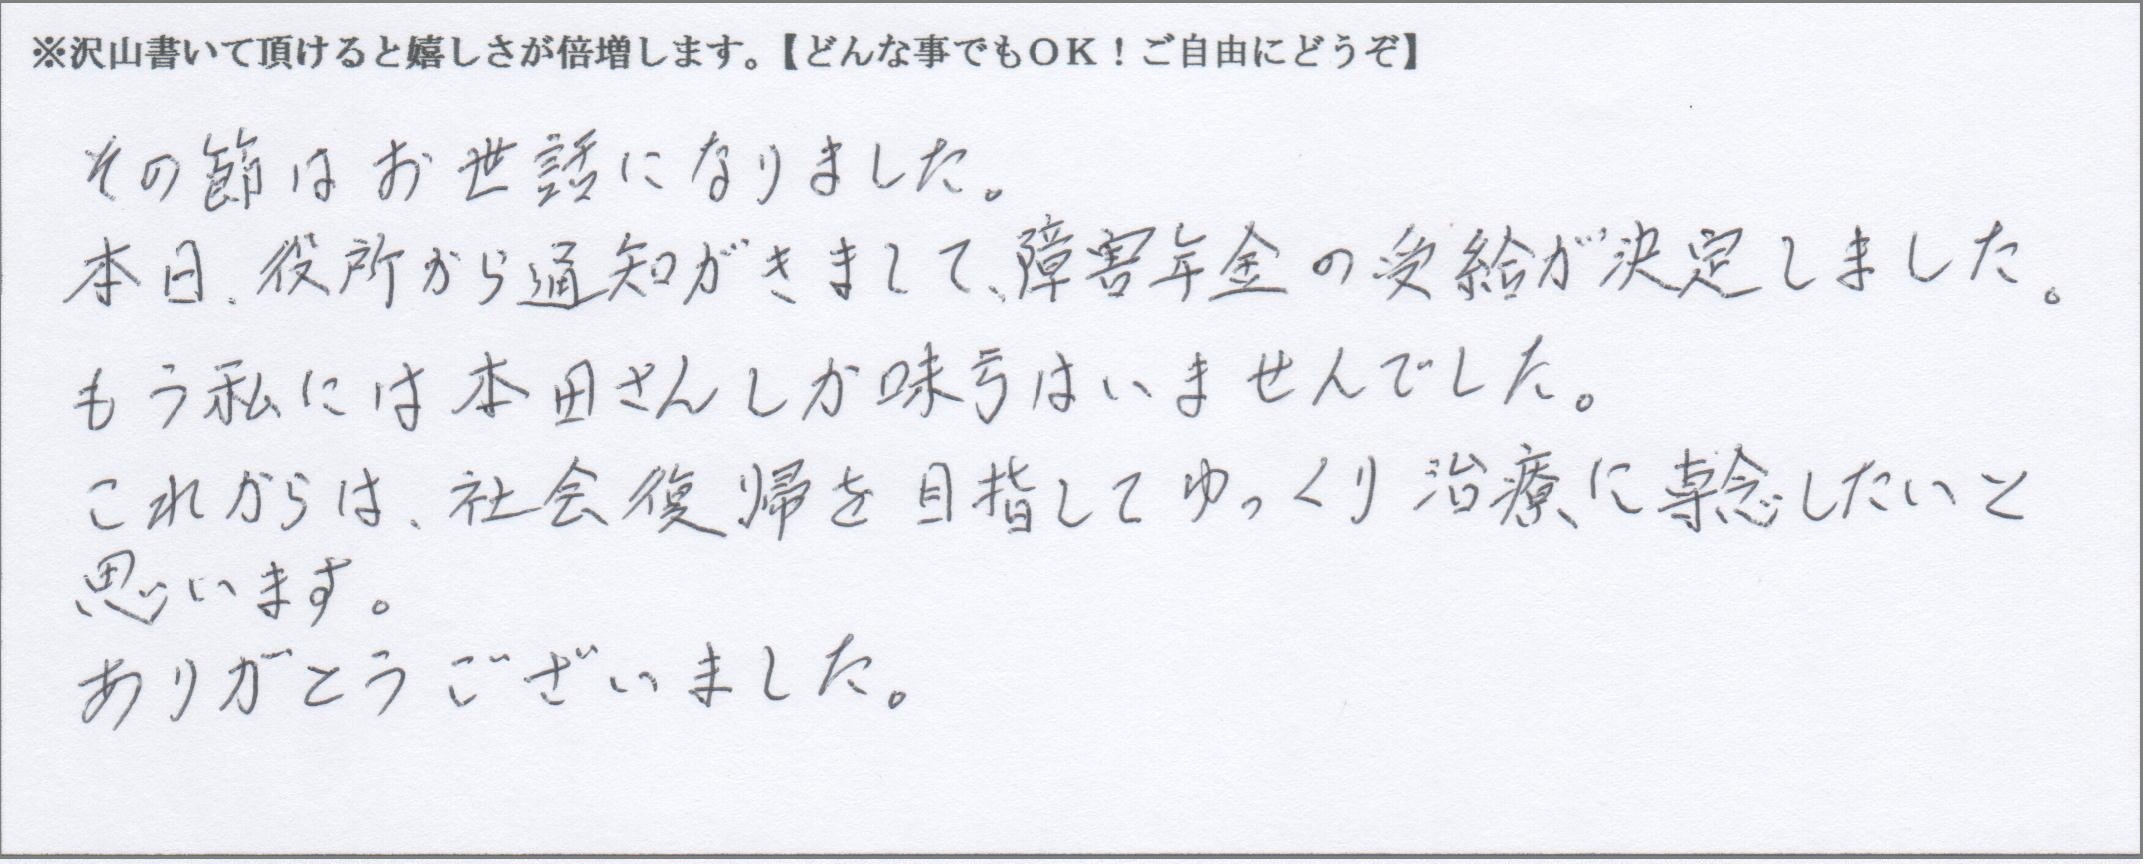 ※沢山書いて頂けると嬉しさが倍増します。【どんな事でもOK！ご自由にどうぞ】
その節はお世話になりました。
本日、役所から通知がきまして、障害年金の受給が決定しました。
もう私には本田さんしか味方はいませんでした。
これからは、社会復帰を目指してゆっくり治療に専念したいと
思います。
ありがとうございました。